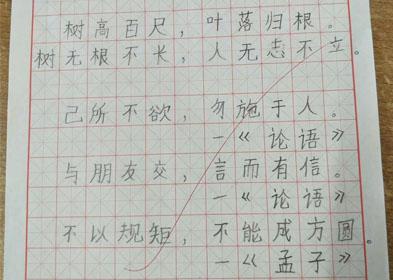 树高百尺，叶落归根。
树无根不长，人无志不立。
己所不欲，勿施于人。
一《论语》
与朋友交，言而有信。
一《论语》
不以规矩，不能成方圆。
一《孟子》